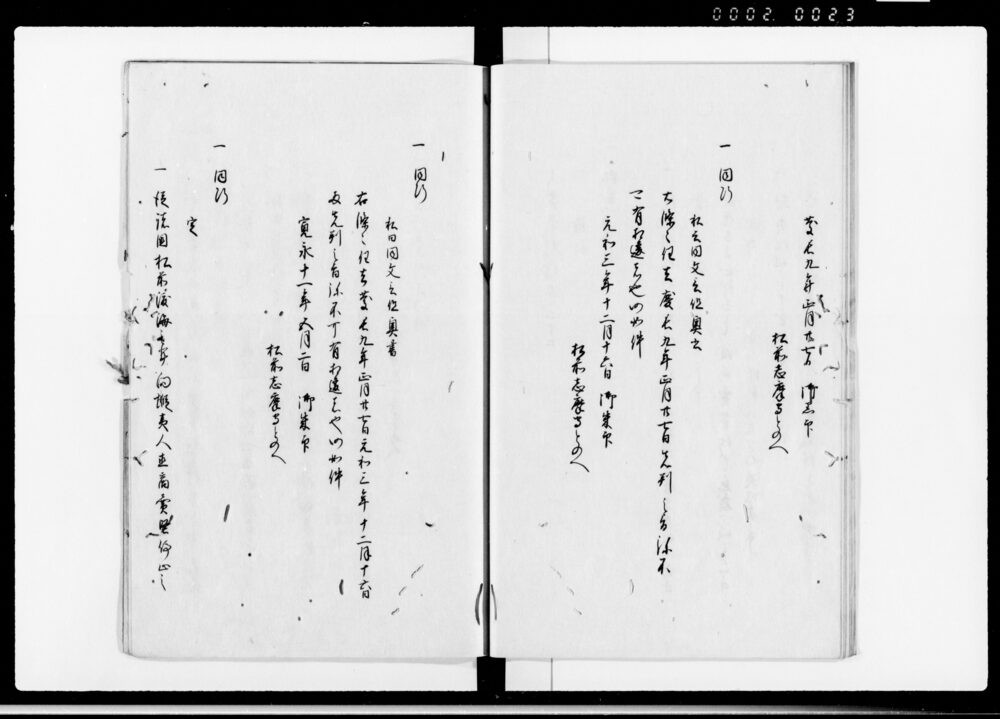 0002 0023
慶長九年正月廿七日 御黒印
松前志摩守とのへ
一 同断
右條々任去慶長九年正月廿七日先判之旨弥不
可有相違者也仍如件
元和三年十二月十六日 御朱印
松前志摩守とのへ
一 同断
右條々任去慶長九年正月廿七日元和三年十二月十六日
両先判之旨弥不可有相違者也仍如件
寛永十一年五月二日 御朱印
松前志摩守とのへ
一 同断
定
一 従諸国松前渡海之輩向蝦夷人直商賣堅停止之